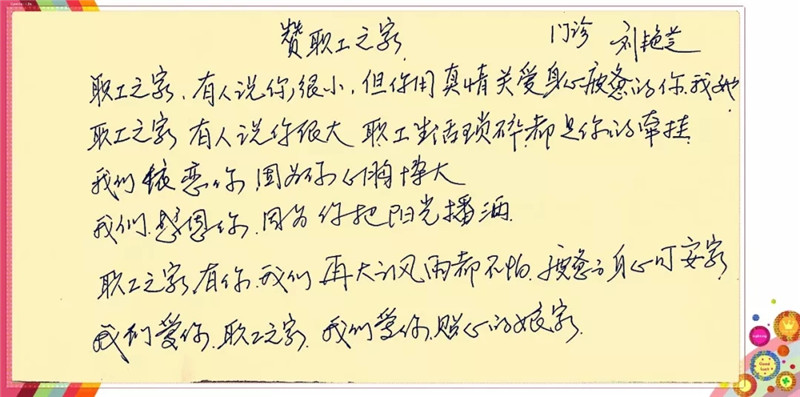 赞职工之家 门诊 刘艳芝
职工之家,有人说你很小,但你用真情关爱身心疲惫的你.我.她
职工之家 有人说你很大 职工生活琐碎都是你的牵挂
我们依恋你 因为你心胸博大
我们.感恩你.因为你把阳光播洒.
职工之家有你.我们再大的风雨都不怕.疲惫的身心可安家.
我们爱你.职工之家.我们爱你.贴心的娘家.